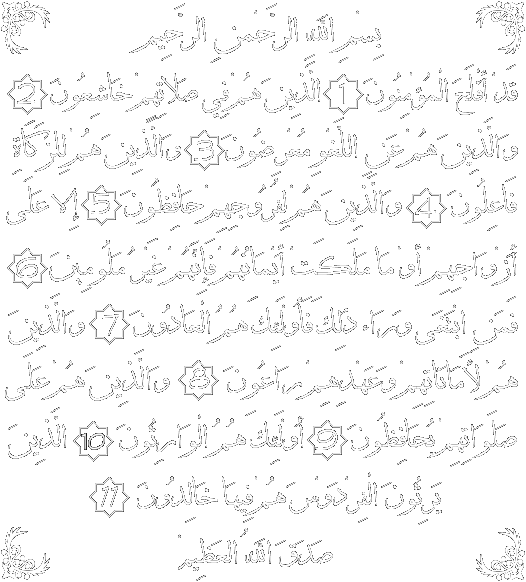 بِسْمِ اللَّهِ الرَّحْمَنِ الرَّحِيمِ
قَدْ أَفْلَحَ الْمُؤْمِنُونَ 1 الَّذِينَ هُمْ فِي صَلَاتِهِمْ خَاشِعُونَ 2
وَالَّذِينَ هُمْ عَنِ اللَّغْوِ مُعْرِضُونَ 3 وَالَّذِينَ هُمْ لِلزَّكَاةِ
فَاعِلُونَ 4 وَالَّذِينَ هُمْ لِفُرُوجِهِمْ حَافِظُونَ 5 إِلَّا عَلَى
أَزْوَاجِهِمْ أَوْ مَا مَلَكَتْ أَيْمَانُهُمْ فَإِنَّهُمْ غَيْرُ مَلُومِينَ 6
فَمَنِ ابْتَغَى وَرَاءَ ذَلِكَ فَأُولَئِكَ هُمُ الْعَادُونَ 7 وَالَّذِينَ
هُمْ لِأَمَانَاتِهِمْ وَعَهْدِهِمْ رَاعُونَ 8 وَالَّذِينَ هُمْ عَلَى
صَلَوَاتِهِمْ يُحَافِظُونَ 9 أُولَئِكَ هُمُ الْوَارِثُونَ 10 الَّذِينَ
يَرِثُونَ الْفِرْدَوْسَ هُمْ فِيهَا خَالِدُونَ 11
صَدَقَ اللَّهُ الْعَظِيمُ